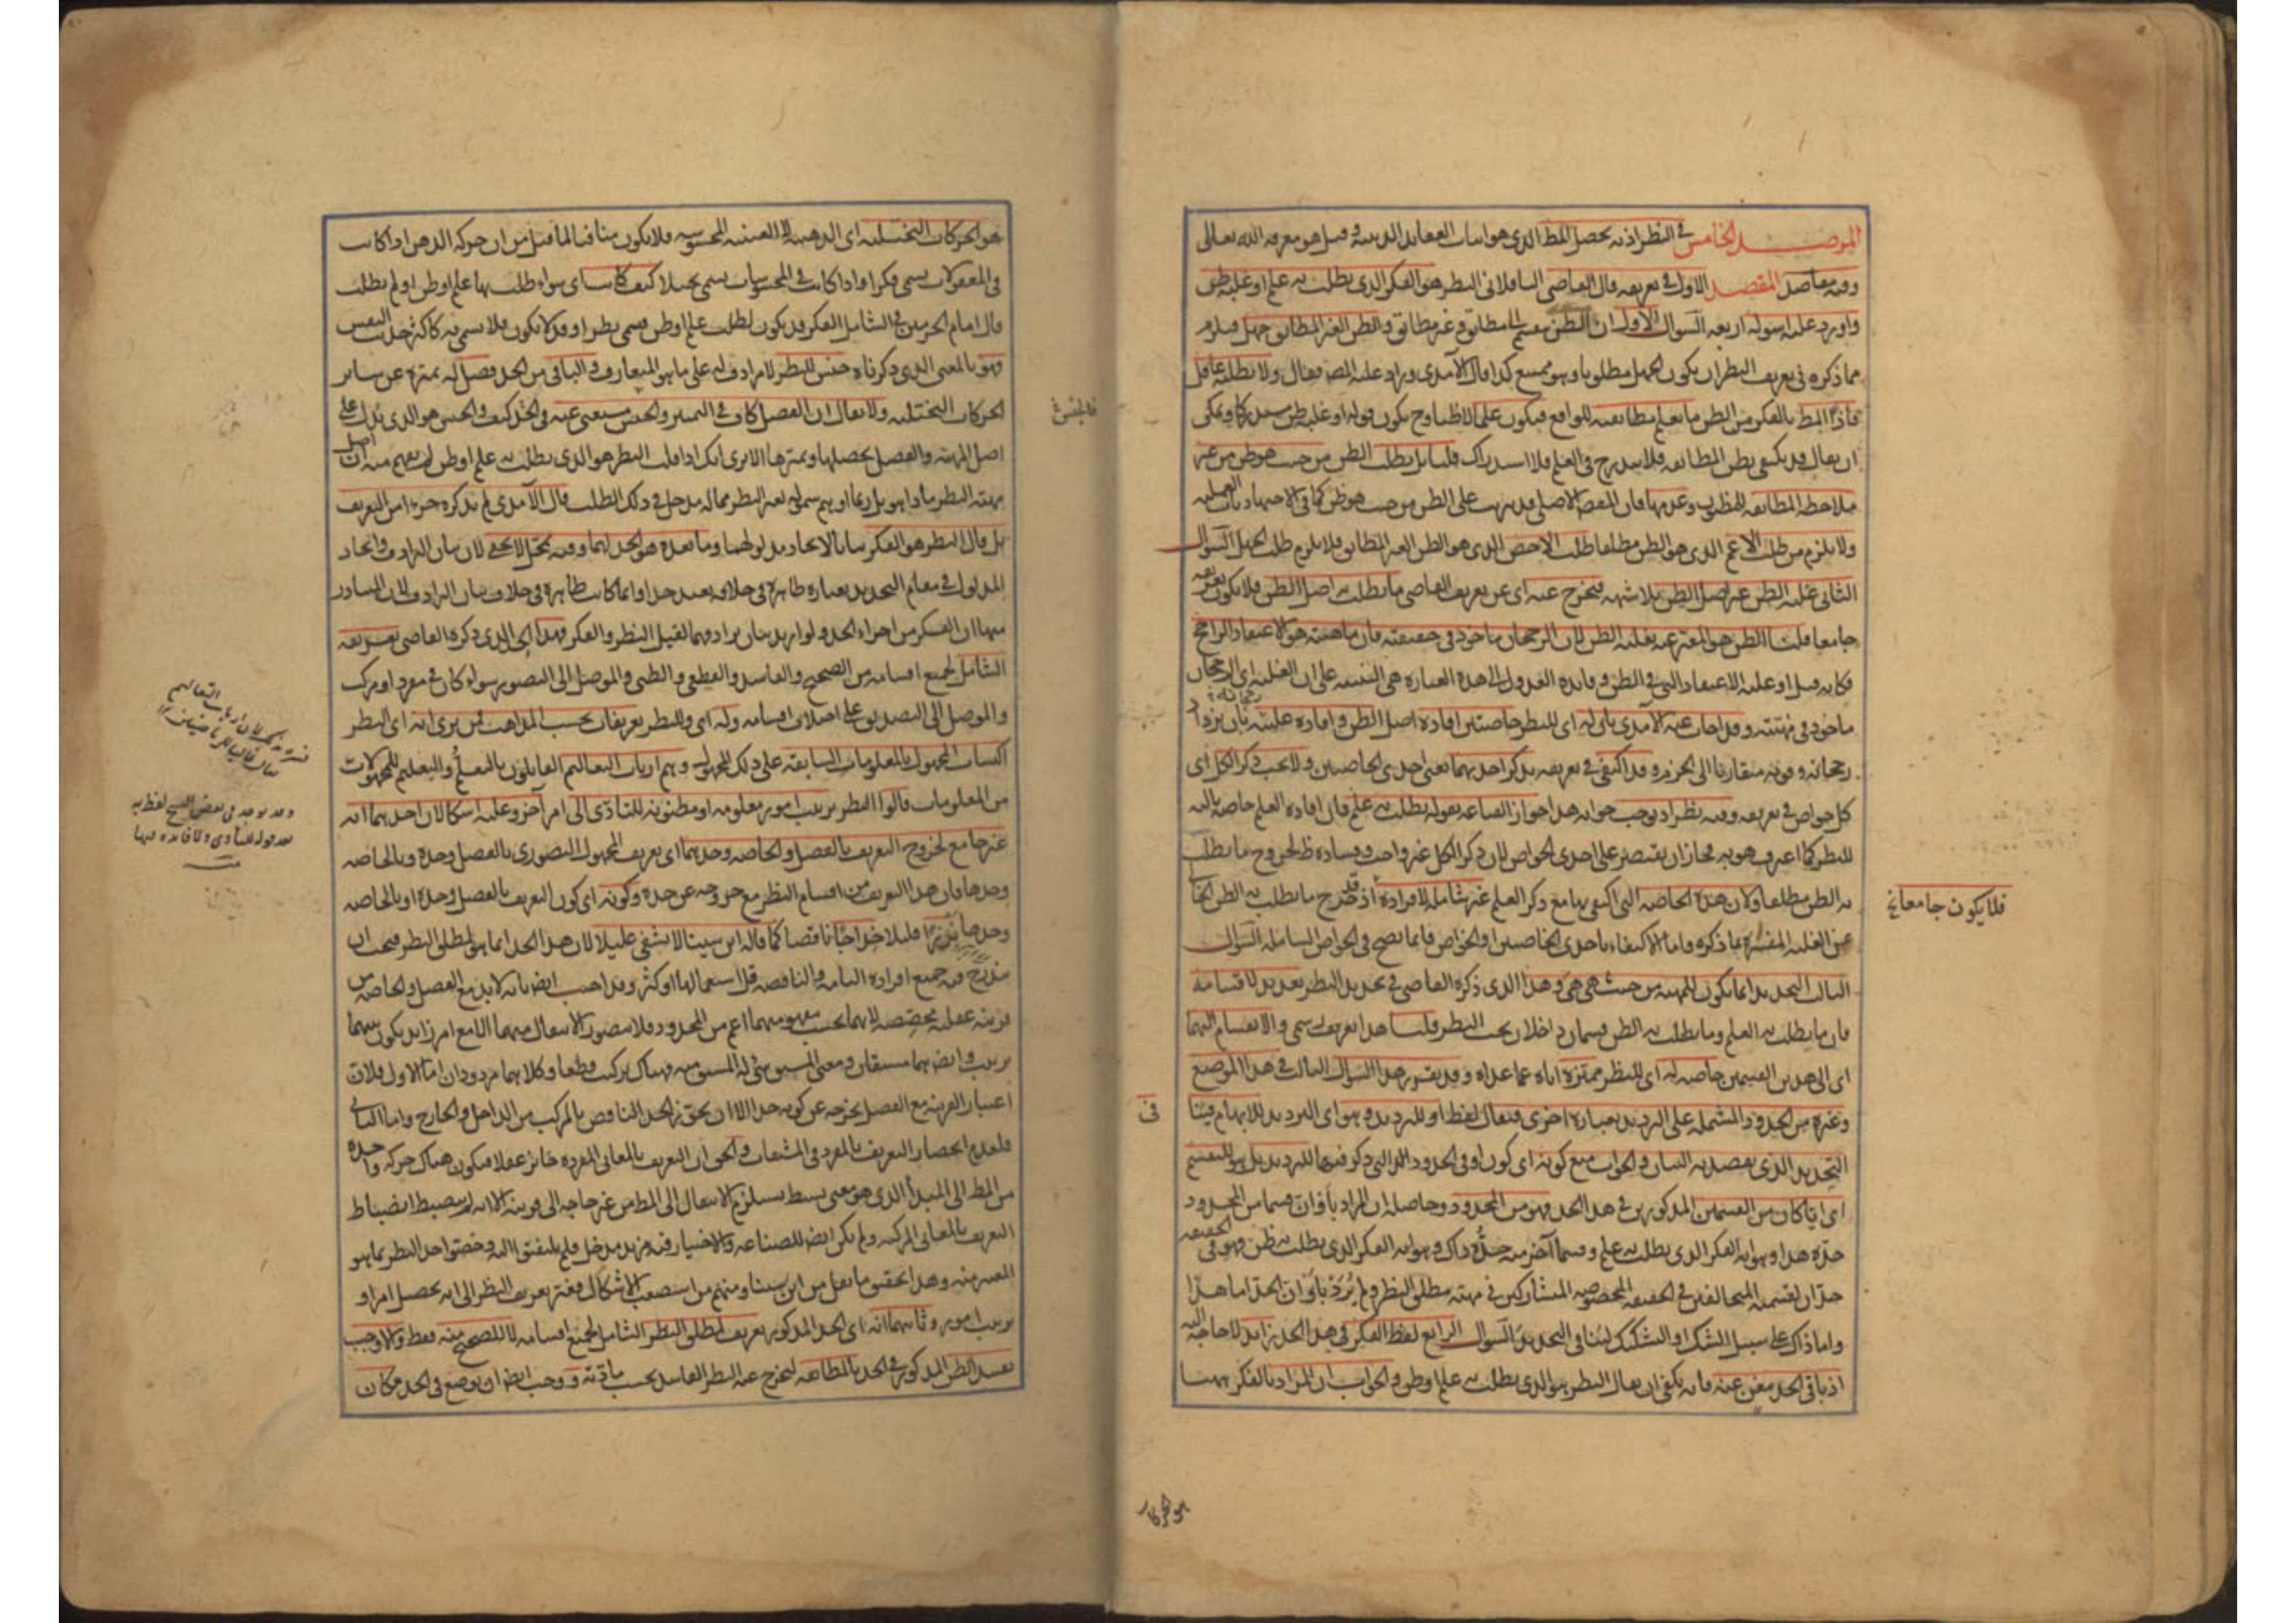 المرصد الخامس في النظر اذ به يحصل المط الذي هو اثبات العقايد الدينية وقيل هو معرفة الله تعالى
وفيه مقاصد المقصد الاول في تعريفه قال القاضي الباقلاني النظر هو الفكر الذي يطلب به علم او غلبة ظن
واورد عليه اسولة اربعة السوال الاول ان الظن ينقسم الى مطابق وغير مطابق والظن الغير المطابق جهل فيلزم
مما ذكره في تعريف النظر ان يكون الجهل مطلوبا وهو ممتنع كذا قال الآمدي وزاد عليه المص فقال ولا يطلبه عاقل
فاذا المط بالفكر من الظن ما يعلم مطابقته للواقع فيكون علما لا ظنا وح يكون قوله او غلبة ظن مستدركا ويمكن
ان يقال قد يكتفى بظن المطابقة فلا يندرج في العلم فلا استدراك قلنا بل يطلب الظن من حيث هو ظن من غير
ملاحظة المطابقة للمظنون وعدمها فان المقصد الاصلي قد يترتب على الظن من حيث هو ظن كما في الاجتهاديات العملية
ولا يلزم من طلب الاعم الذي هو الظن مطلقا طلب الاخص الذي هو الظن الغير المطابق فلا يلزم طلب الجهل السوال
الثاني غلبة الظن غير اصل الظن بلا شبهة فيخرج عنه اي عن تعريف القاضي ما يطلب به اصل الظن فلا يكون تعريفه
جامعا قلنا الظن هو المعبر عنه بغلبة الظن لان الرجحان ماخوذ في حقيقته فان ماهيته هو الاعتقاد الراجح
فكانه قيل او غلبة الاعتقاد التي هي الظن وفايدة العدول الى هذه العبارة هي التنبيه على ان الغلبة اي الرجحان
ماخوذ في مهيته وقد اجاب عنه الآمدي بان له اي للنظر خاصتين افادة اصل الظن وافادة غلبته بان يزداد
رجحانه وقوته متقاربا الى الجزم وقد اكتفى في تعريفه بذكر احديهما يعني احدى الخاصتين ولا يجب ذكر الكل اي
كل خواص في تعريفه وفيه نظر اذ يوجب جوابه هذا جواز القناعة بقوله يطلب به علم فان افادة العلم خاصة ثالثة
للنظر كما اعترف هو به فجاز ان يقتصر على احدى الخواص لان ذكر الكل غير واجب وفساده ظ لخروج ما يطلب
به الظن مطلقا ولان هذه الخاصة التي اكتفى بها مع ذكر العلم غير شاملة لافراده اذ قد خرج ما يطلب به الظن الخالي
عن الغلبة المفسرة بما ذكره واما الاكتفاء باحدى الخاصتين او الخواص فانما يصح في الخواص الشاملة السوال
الثالث التحديد انما يكون للمهية من حيث هي هي وهذا الذي ذكره القاضي في تحديد النظر تعديد لاقسامه
فان ما يطلب به العلم وما يطلب به الظن قسمان داخلان تحت النظر قلنا هذا تعريف رسمي والانقسام اليهما
اي الى هذين القسمين خاصة له اي للنظر مميزة اياه عما عداه وقد يقرر هذا السوال الثالث في هذا الموضع
وغيره من الحدود المشتملة على الترديد بعبارة اخرى فيقال لفظ او للترديد وهو اي الترديد للابهام فينافي
التحديد الذي يقصد به البيان والجواب منع كونه اي كون او في الحدود التي ذكر فيها للترديد بل هو للتقسيم
اي ايا كان من القسمين المذكورين في هذا الحد فهو من المحدود وحاصله ان المراد باو ان قسما من المحدود
حده هذا وهو انه الفكر الذي يطلب به علم وقسما آخر منه حده ذاك وهو انه الفكر الذي يطلب به ظن وهو في الحقيقة
حدان لقسميه المتخالفين في الحقيقة المخصوصة المتشاركين في مهية مطلق النظر ولم يرد باو ان الحد اما هذا
واما ذاك على سبيل الشك او التشكيك لينافي التحديد السوال الرابع لفظ الفكر في هذا الحد زايد لا حاجة اليه
اذ باقي الحد مغن عنه فانه يكفي ان يقال النظر هو الذي يطلب به علم او ظن والجواب ان المراد بالفكر ههنا
فلا يكون جامعا خ
هو الحركات
هو الحركات التخيلية اي الذهنية لا العينية المحسوسة فلا يكون منافيا لما قيل من ان حركة الذهن اذا كانت
في المعقولات يسمى فكرا واذا كانت في المحسوسات يسمى تخيلا كيف كانت اي سواء طلب بها علم او ظن او لم يطلب
قال امام الحرمين في الشامل الفكر قد يكون لطلب علم او ظن فيسمى نظرا وقد لا يكون فلا يسمى به كاكثر حديث النفس
فهو بالمعنى الذي ذكرناه جنس للنظر لا مرادف له على ما هو المتعارف والباقي من الحد فصل له يميزه عن ساير
الحركات التخيلية ولا يقال ان الفصل كاف في التمييز والجنس مستغنى عنه في الحد كيف والجنس هو الذي يدل على
اصل المهية والفصل يحصلها ويميزها الا ترى انك اذا قلت النظر هو الذي يطلب به علم او ظن لم يفهم منه ان اصل
مهية النظر ماذا هو بل ربما اوهم شموله لغير النظر مما له مدخل في ذلك الطلب قال الآمدي لم يذكره جزءا من التعريف
بل قال النظر هو الفكر بيانا لاتحاد مدلولهما وما بعده هو الحد لهما وفيه تمحل لا يخفى لان بيان الترادف واتحاد
المدلول في مقام التحديد بعبارة ظاهرة في خلافه بعيد جدا وانما كانت ظاهرة في خلاف بيان الترادف لان المتبادر
منها ان الفكر من اجزاء الحد ولو اريد بيان ترادفهما لقيل النظر والفكر فهذا اي الذي ذكره القاضي تعريفه
الشامل لجميع اقسامه من الصحيح والفاسد والقطعي والظني والموصل الى التصور سواء كان في مفرد او مركب
والموصل الى التصديق على اختلاف اقسامه وله اي وللنظر تعريفات بحسب المذاهب فمن يرى انه اي النظر
اكتساب المجهول بالمعلومات السابقة على ذلك المجهول وهم ارباب التعاليم القايلون بالتعلم والتعليم للمجهولات
من المعلومات قالوا النظر ترتيب امور معلومة او مظنونة للتادي الى امر آخر وعليه اشكالان احدهما انه
غير جامع لخروج التعريف بالفصل والخاصة وحدهما اي تعريف المجهول التصوري بالفصل وحده وبالخاصة
وحدها فان هذا التعريف من اقسام النظر مع خروجه عن حده وكونه اي كون التعريف بالفصل وحده او بالخاصة
وحدها نزرا قليلا خداجا ناقصا كما قاله ابن سينا لا يشفي غليلا لان هذا الحد انما هو لمطلق النظر فيجب ان
يندرج فيه جميع افراده التامة والناقصة قل استعمالها او كثر وقد اجيب ايضا بانه لابد مع الفصل والخاصة من
قرينة عقلية مخصصة لانهما بحسب مفهومهما اعم من المحدود فلا يتصور الانتقال منهما الا مع امر زايد يكون بينهما
ترتيب وايضا هما مشتقان ومعنى المشتق شيء له المشتق منه فهناك تركيب قطعا وكلاهما مردودان اما الاول فلان
اعتبار القرينة مع الفصل يخرجه عن كونه حدا الا ان يجوز الحد الناقص بالمركب من الداخل والخارج واما الثاني
فلعدم انحصار التعريف بالمفرد في المشتقات والحق ان التعريف بالمعاني المفردة جائز عقلا فيكون هناك حركة واحدة
من المط الى المبدأ الذي هو معنى بسيط يستلزم الانتقال الى المط من غير حاجة الى قرينة الا انه لم ينضبط انضباط
التعريف بالمعاني المركبة ولم يكن ايضا للصناعة والاختيار فيه مزيد مدخل فلم يلتفتوا اليه وخصوا حد النظر بما هو
المعتبر منه وهذا تحقيق ما نقل من ابن سينا ومنهم من استصعب الاشكال فغير تعريف النظر الى انه تحصيل امر او
ترتيب امور وثانيهما انه اي الحد المذكور تعريف لمطلق النظر الشامل لجميع اقسامه لا للصحيح منه فقط والا وجب
تقييد الظن المذكور في الحد بالمطابقة ليخرج عنه النظر الفاسد بحسب مادته ووجب ايضا ان يوضع في الحد مكان
وقد يوجد في بعض النسخ لفظ به
بعد قوله للتأدي ولا فايدة فيها